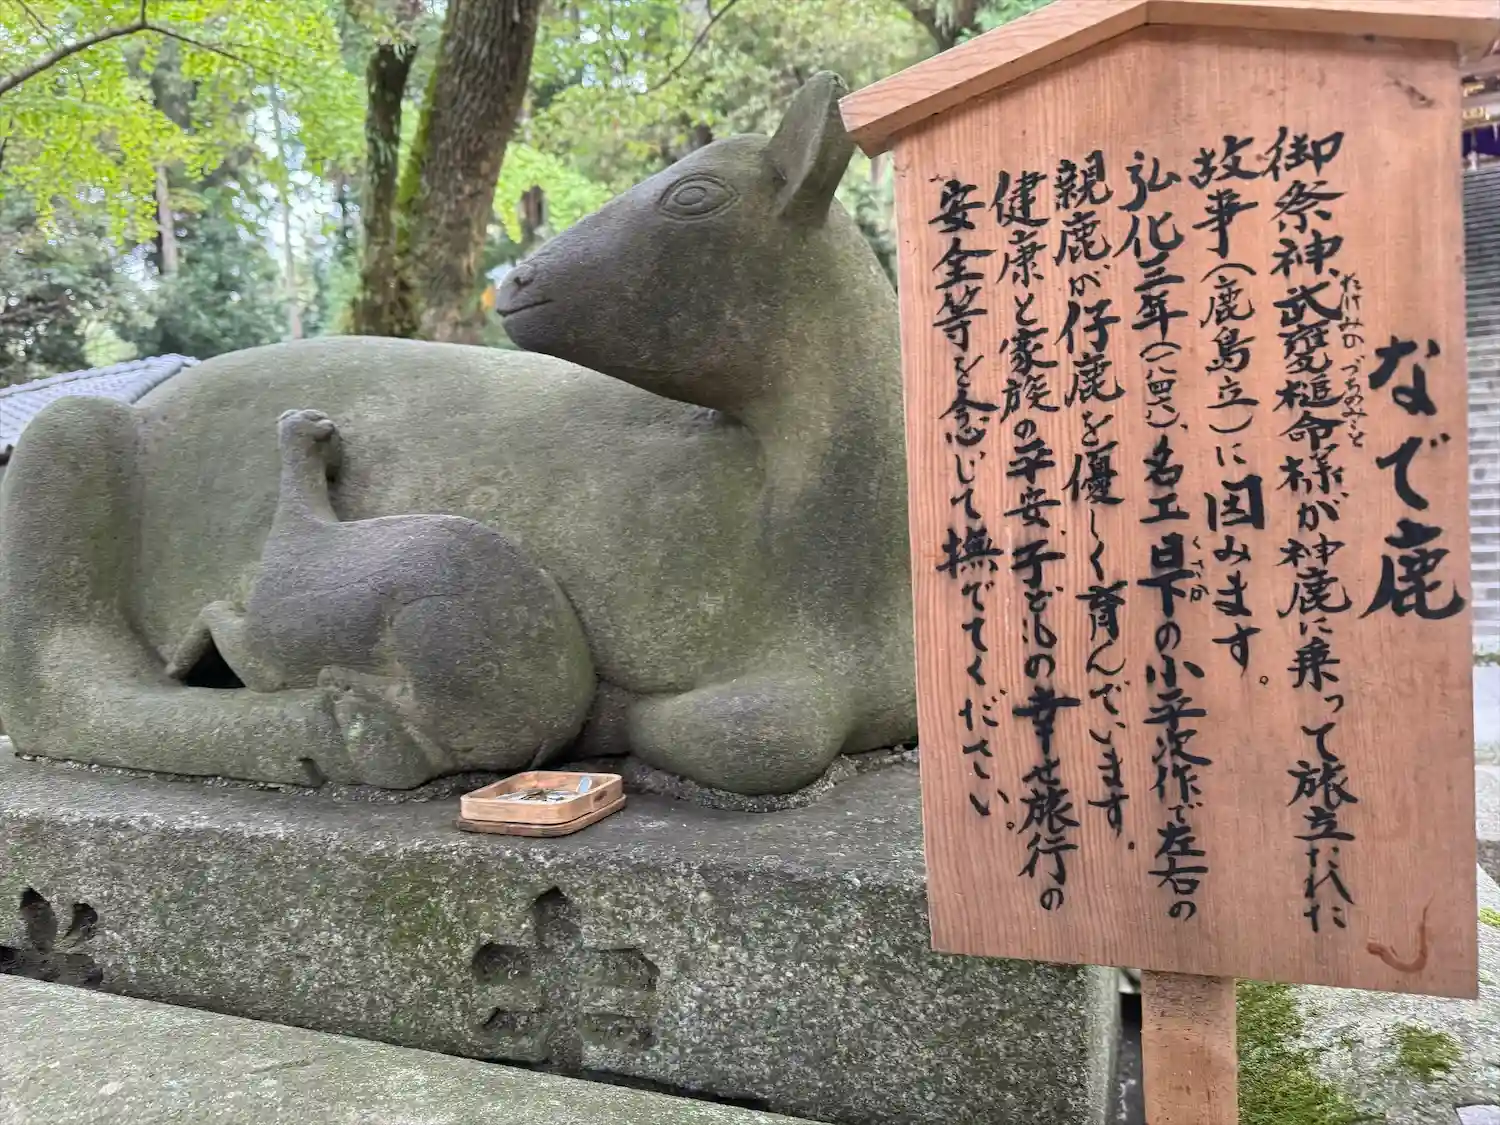 なで鹿
御祭神、武甕槌命様が神鹿に乗って旅立たれた
たけみかづちのみこと
故事（鹿島立）に因みます。
弘化三年（一八四六）、名工日下の小平次作で左右の
くさか
親鹿が仔鹿を優しく育んでいます。
健康と家族の平安、子どもの幸せ旅行の
安全等を念じて撫でてください。